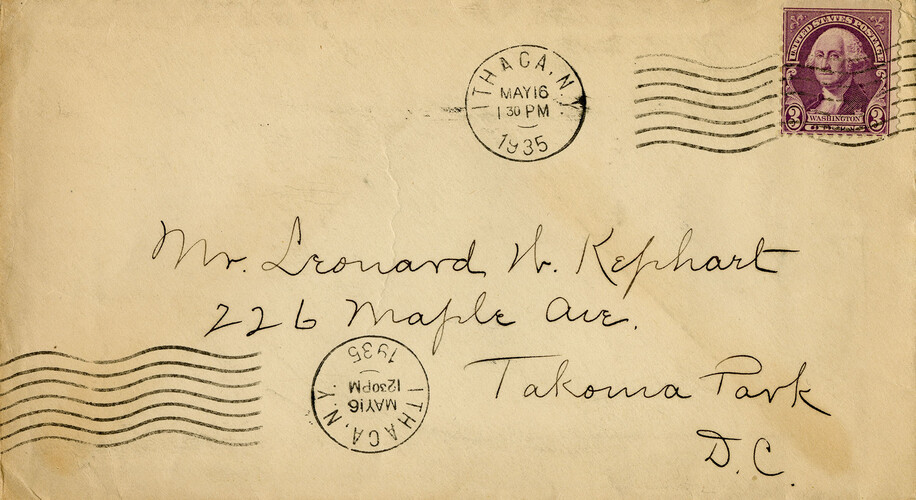 UNITED STATES POSTAGE
3 WASHINGTON 3
ITHACA, N.Y.
MAY 16
1 30 PM
1935
Mr. Leonard W. Kephart
226 Maple Ave.
Takoma Park
D.C.
ITHACA, N.Y.
MAY 16
12 30 PM
1935